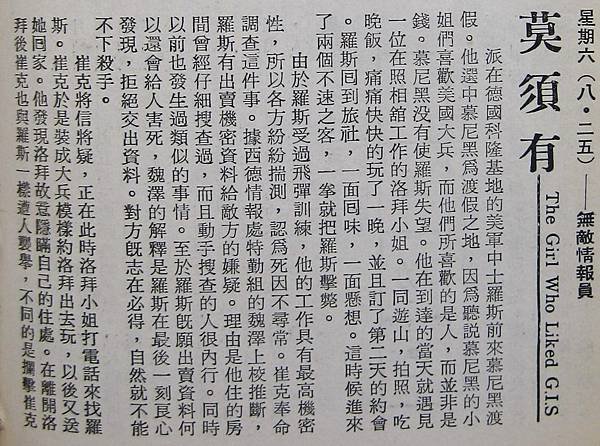 星期六（八·二五）——無敵情報員
莫須有
The Girl Who Liked G.I.S
派在德國科隆基地的美軍中士羅斯前來慕尼黑渡
假。他選中慕尼黑為渡假之地，因為聽説慕尼黑的小
姐們喜歡美國大兵，而他們所喜歡的是人，而並非是
錢。慕尼黑没有使羅斯失望。他在到達的當天就遇見
一位在照相舘工作的洛拜小姐。一同遊山，拍照，吃
晚飯，痛痛快快的玩了一晚，並且訂了第二天的約會
。羅斯囘到旅社，一面囘味，一面懸想。這時候進來
了兩個不速之客，一拳就把羅斯擊斃。
由於羅斯受過飛彈訓練，他的工作具有最高機密
性，所以各方紛紛揣測，認為死因不尋常。崔克奉命
調查這件事。據西德情報處特勤組的魏澤上校推斷，
羅斯有出賣機密資料給敵方的嫌疑。理由是他住的房
間曾經仔細搜查過，而且動手搜查的人很內行。同時
以前也發生過類似的事情。至於羅斯旣願出賣資料何
以還會給人害死，魏澤的解釋是羅斯在最後一刻良心
發現，拒絕交出資料。對方旣志在必得，自然就不能
不下殺手。
崔克將信將疑，正在此時洛拜小姐打電話來找羅
斯。崔克於是裝成大兵模樣約洛拜出去玩，以後又送
她囘家。他發現洛拜故意隱瞞自己的住處。在離開洛
拜後崔克也與羅斯一樣遭人襲擊，不同的是攔擊崔克